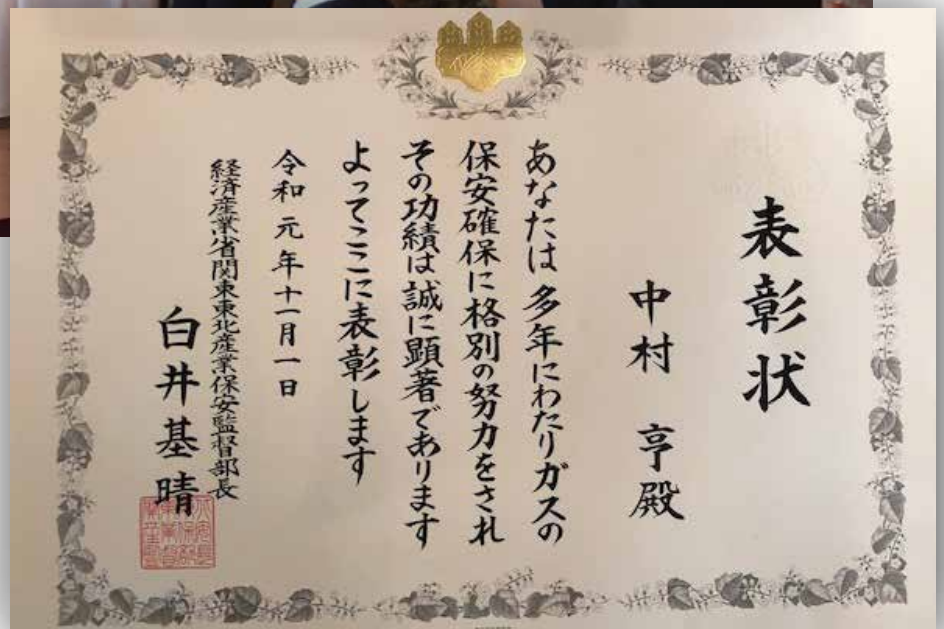 表彰状
中村 亨殿
あなたは多年にわたりガスの
保安確保に格別の努力をされ
その功績は誠に顕著であります
よってここに表彰します
令和元年十一月一日
経済産業省関東東北産業保安監督部長
白井基晴